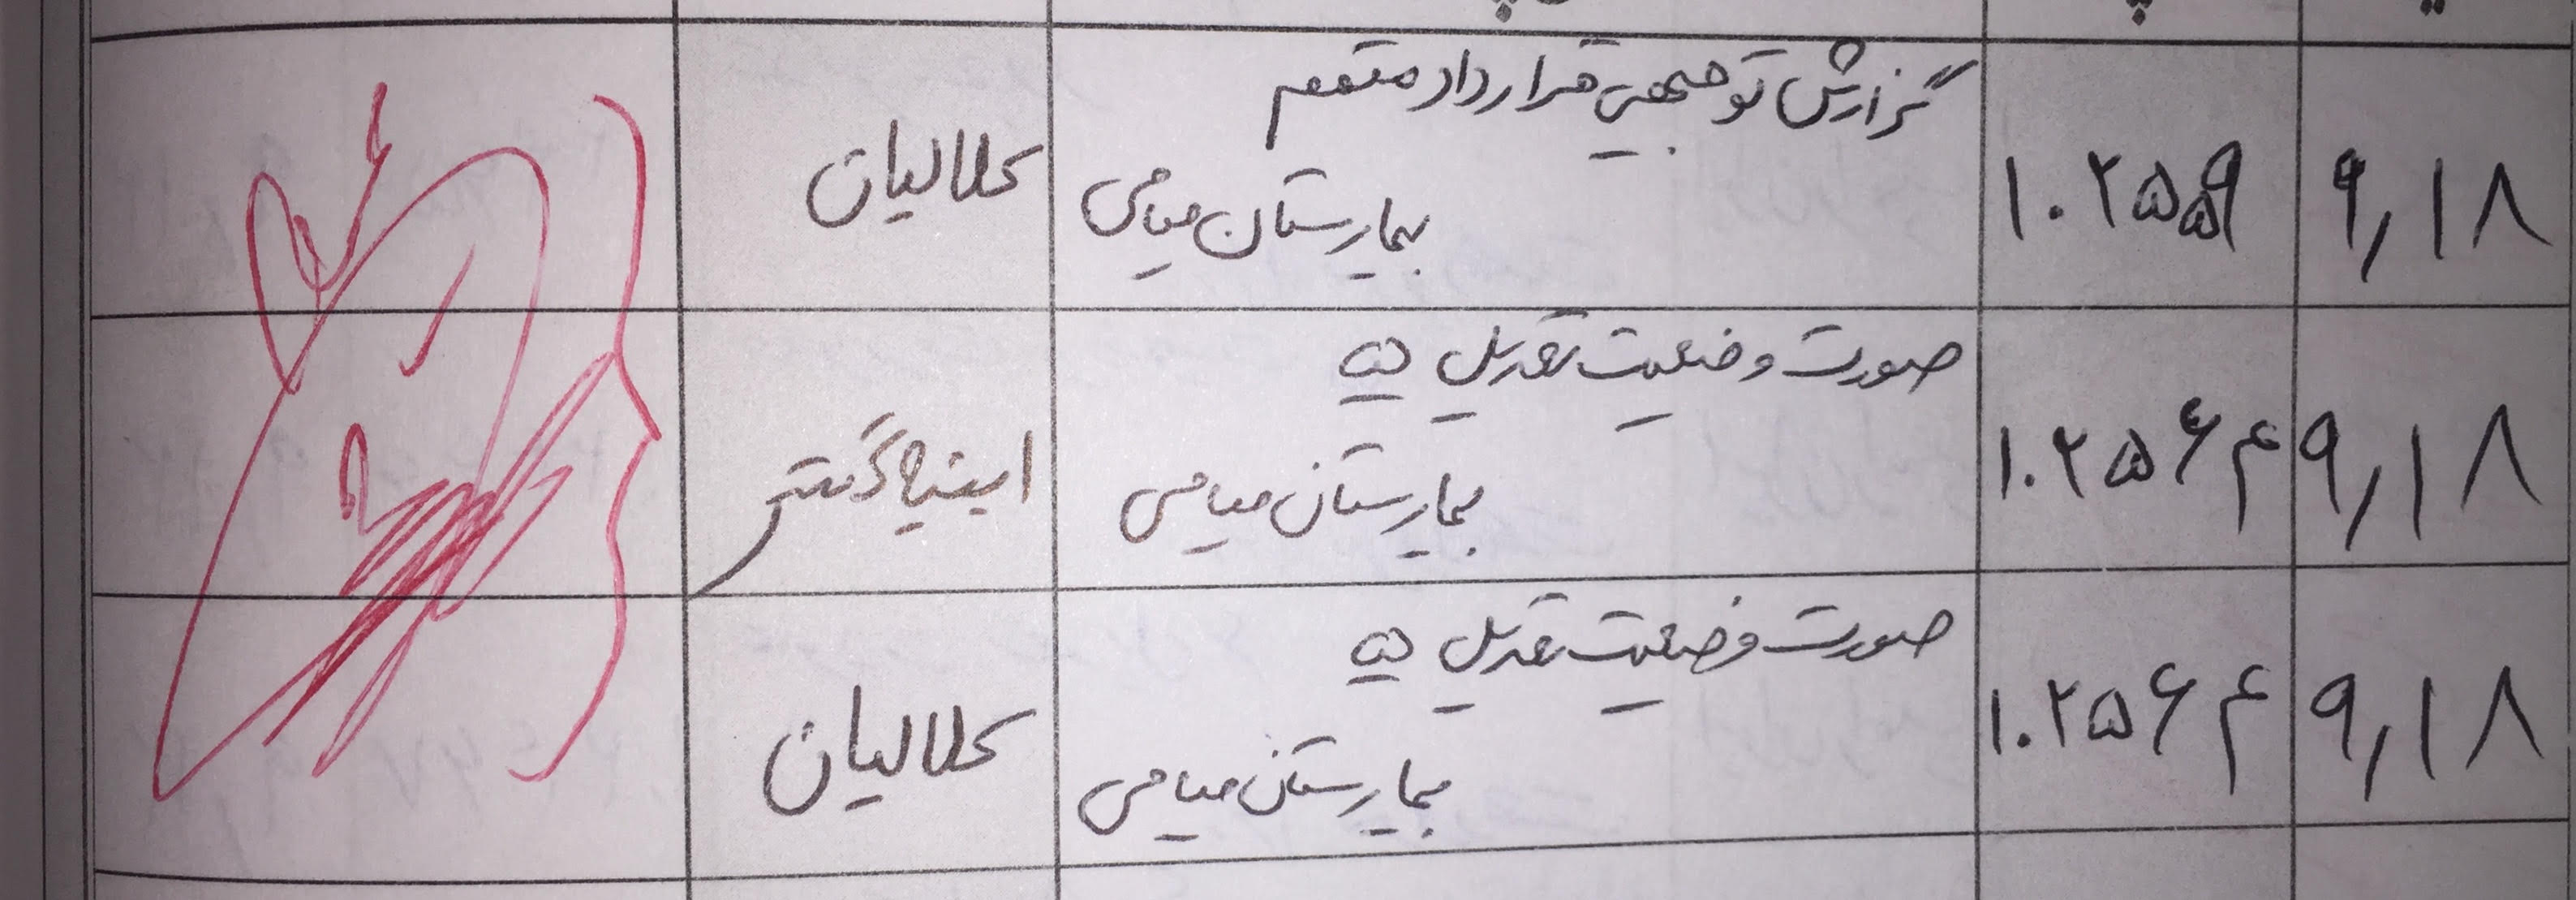 ۹٫۱۸
۱۰۲۵۵۹
گزارش توجیهی قرارداد متمم
بیمارستان میامی
کلالیان
۹٫۱۸
۱۰۲۵۶۴
صورت وضعیت تعدیل ۵
بیمارستان میامی
ابنیه گستر
۹٫۱۸
۱۰۲۵۶۴
صورت وضعیت تعدیل ۵
بیمارستان میامی
کلالیان